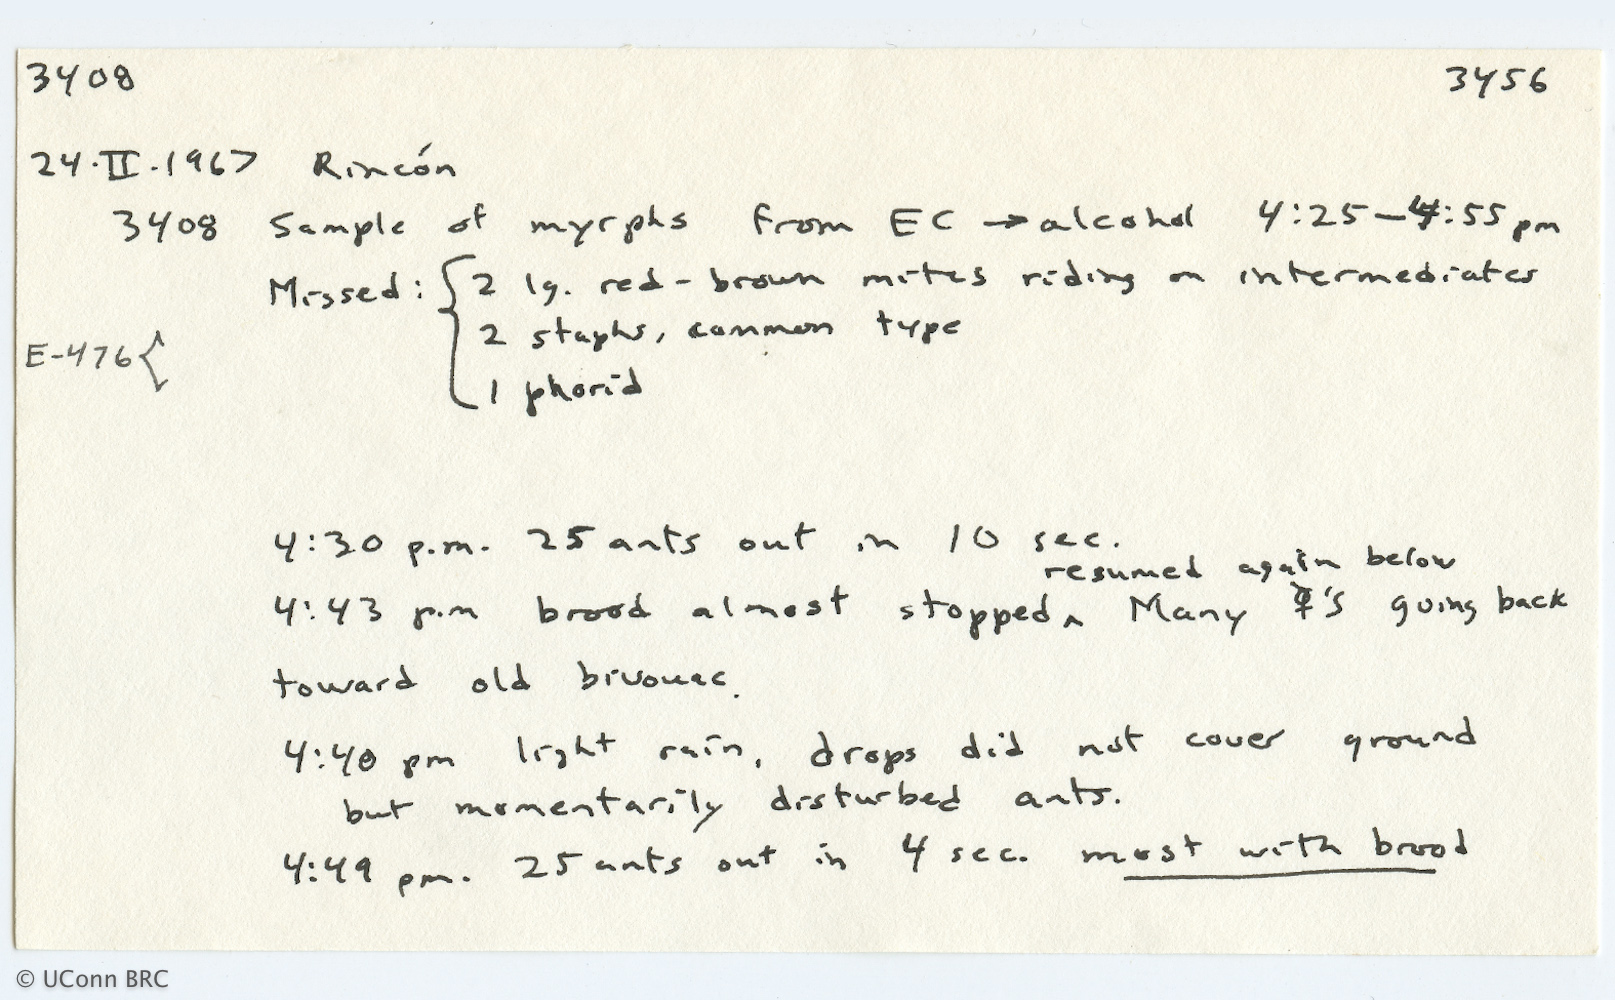 3408 3456
24.II.1967 Rincón
3408 Sample of myrphs from EC → alcohol 4:25–4:55 pm
Missed: { 2 lg. red-brown mites riding on intermediates
2 staphs, common type
E-476 {
1 phorid
4:30 p.m. 25 ants out in 10 sec.
resumed again below
4:43 p.m brood almost stopped ^ Many ☿'s going back
toward old bivouac.
4:40 pm light rain, drops did not cover ground
but momentarily disturbed ants.
4:49 pm. 25 ants out in 4 sec. most with brood
© UConn BRC